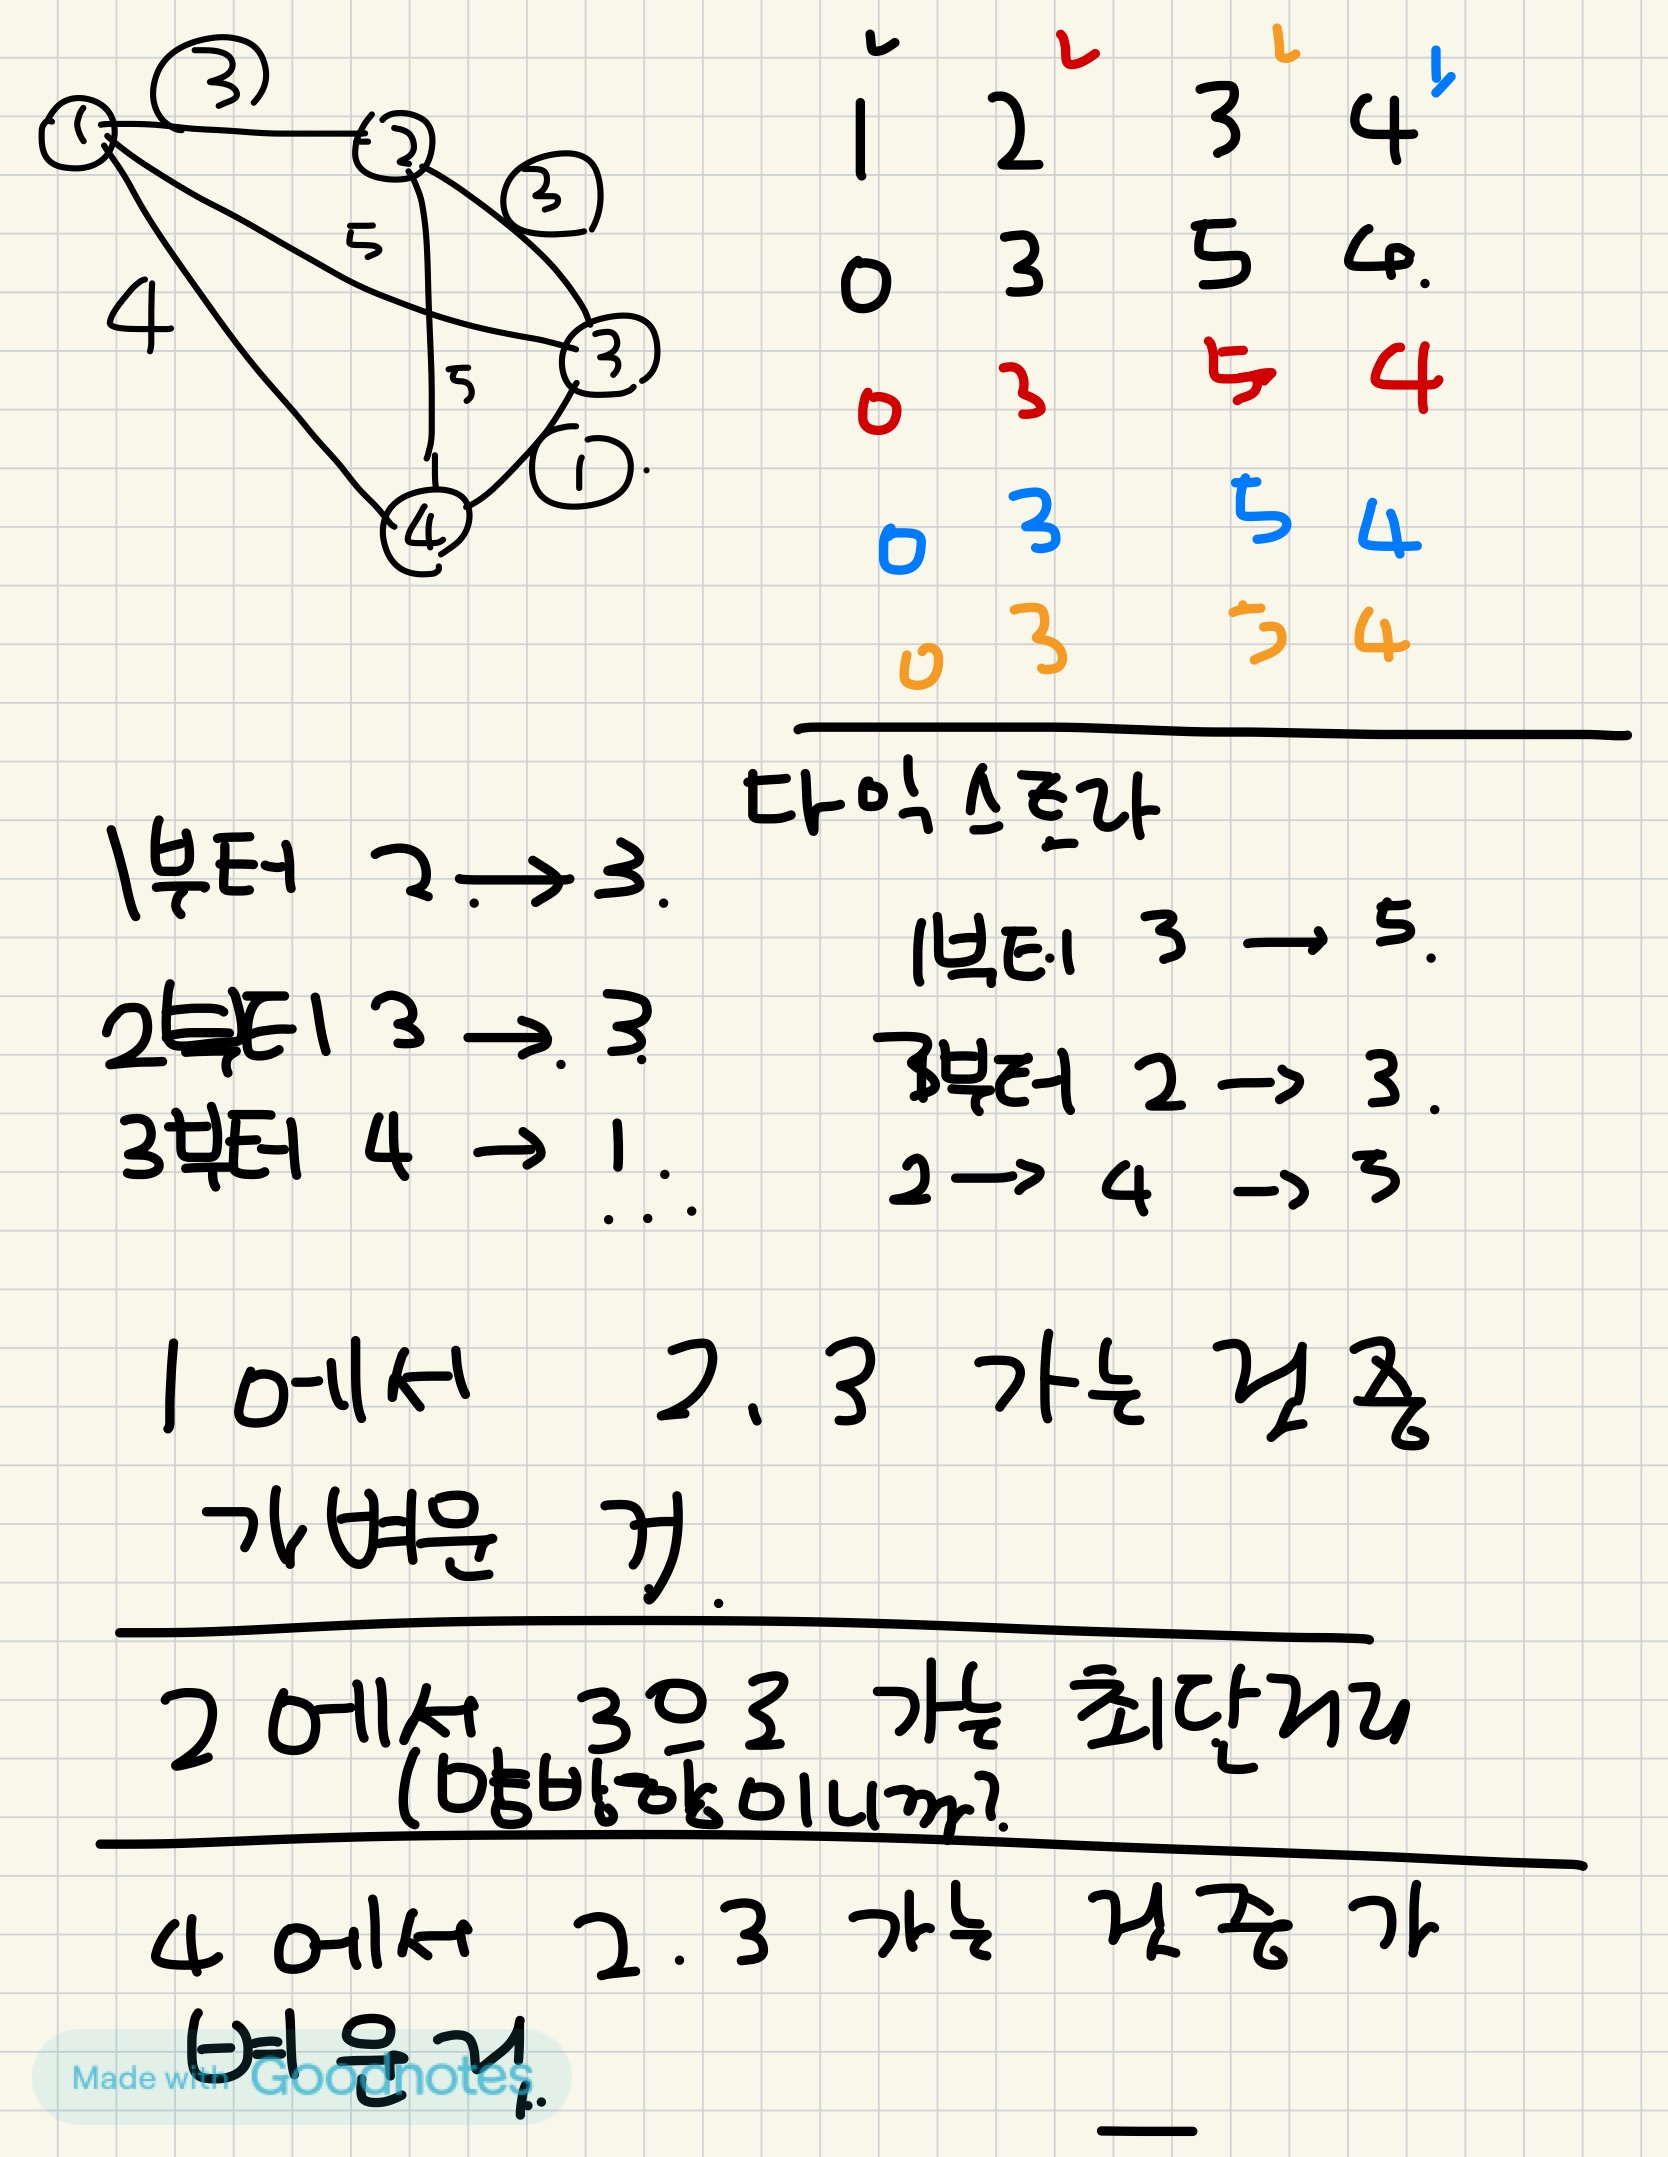 3
1
2
3
5
4
3
5
1.
4
1 2 3 4
0 3 5 4.
0 3 5 4
0 3 5 4
0 3 5 4
다익스트라
1부터 2 → 3.
2부터 3 → 3.
3부터 4 → 1.
...
1부터 3 → 5.
3부터 2 → 3.
2 → 4 → 5
1에서 2, 3 가는 것 중
가벼운 거.
2에서 3으로 가는 최단거리
(양방향이니까?
4에서 2. 3 가는 것 중 가
벼운거.
Made with Goodnotes